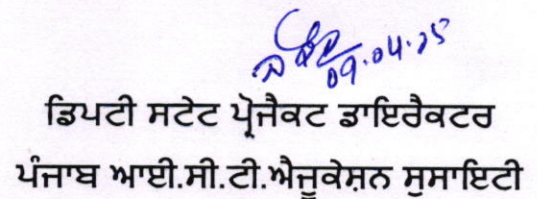 09.04.25
ਡਿਪਟੀ ਸਟੇਟ ਪ੍ਰੋਜੈਕਟ ਡਾਇਰੈਕਟਰ
ਪੰਜਾਬ ਆਈ.ਸੀ.ਟੀ.ਐਜੂਕੇਸ਼ਨ ਸੁਸਾਇਟੀ